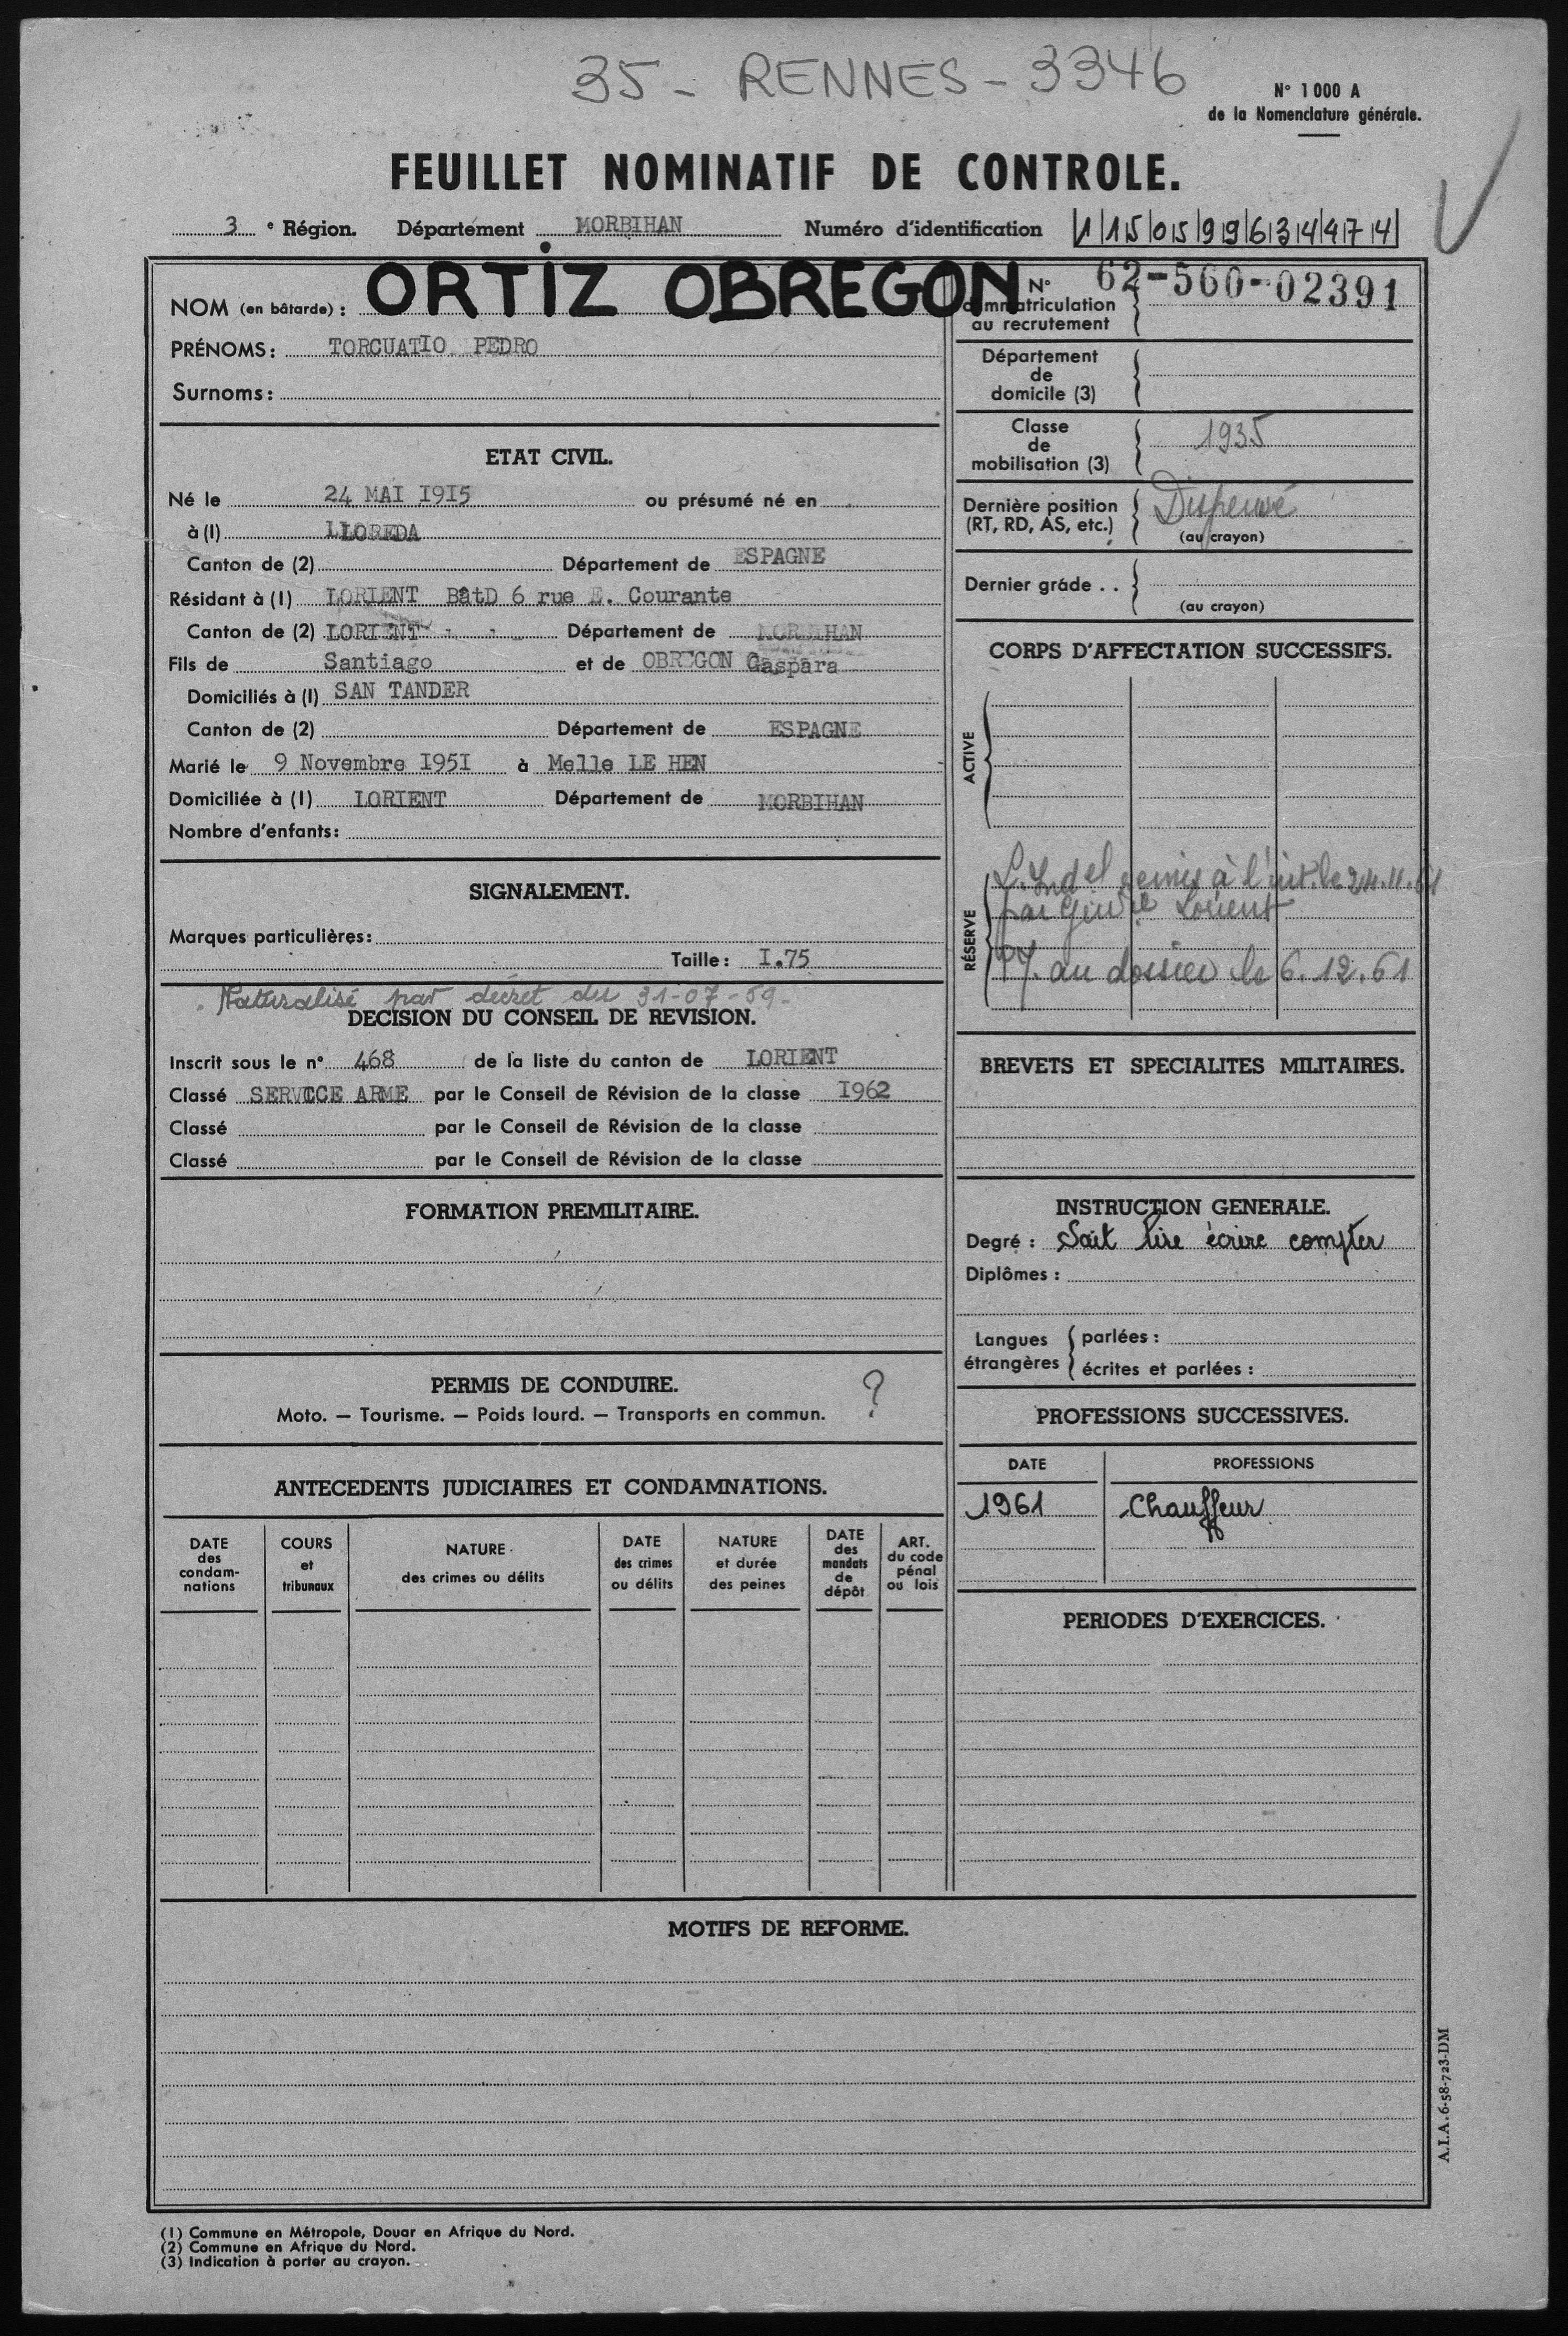 35 - RENNES - 3346
N° 1 000 A
de la Nomenclature générale.
FEUILLET NOMINATIF DE CONTROLE.
3 e Région. Département MORBIHAN Numéro d'identification 1 15 05 99 6 3 4 4 7 4
NOM (en bâtarde) : ORTIZ OBREGON
PRÉNOMS : TORCUATIO PEDRO
Surnoms :
ETAT CIVIL.
Né le 24 MAI 1915 ou présumé né en
à (1) LLOREDA
Canton de (2) Département de ESPAGNE
Résidant à (1) LORIENT BâtD 6 rue E. Courante
Canton de (2) LORIENT Département de MORBIHAN
Fils de Santiago et de OBREGON Gaspara
Domiciliés à (1) SAN TANDER
Canton de (2) Département de ESPAGNE
Marié le 9 Novembre 1951 à Melle LE HEN
Domiciliée à (1) LORIENT Département de MORBIHAN
Nombre d'enfants :
SIGNALEMENT.
Marques particulières :
Taille : 1.75
Naturalisé par décret du 31-07-59.
DECISION DU CONSEIL DE REVISION.
Inscrit sous le n° 468 de la liste du canton de LORIENT
Classé SERVICE ARME par le Conseil de Révision de la classe 1962
Classé par le Conseil de Révision de la classe
Classé par le Conseil de Révision de la classe
FORMATION PREMILITAIRE.
PERMIS DE CONDUIRE. ?
Moto. — Tourisme. — Poids lourd. — Transports en commun.
ANTECEDENTS JUDICIAIRES ET CONDAMNATIONS.
DATE des condam-nations
COURS et tribunaux
NATURE des crimes ou délits
DATE des crimes ou délits
NATURE et durée des peines
DATE des mandats de dépôt
ART. du code pénal ou lois
N° d'immatriculation au recrutement 62-560-02391
Département de domicile (3)
Classe de mobilisation (3) 1935
Dernière position (RT, RD, AS, etc.) Dispensé
(au crayon)
Dernier grade . .
(au crayon)
CORPS D'AFFECTATION SUCCESSIFS.
ACTIVE
RÉSERVE
L. Indel remis à l'int. le 24.11.61
par Gendie Lorient
PV. au dossier le 6.12.61
BREVETS ET SPECIALITES MILITAIRES.
INSTRUCTION GENERALE.
Degré : Sait lire écrire compter
Diplômes :
Langues étrangères
parlées :
écrites et parlées :
PROFESSIONS SUCCESSIVES.
DATE PROFESSIONS
1961 Chauffeur
PERIODES D'EXERCICES.
MOTIFS DE REFORME.
A.I.A.6-58-723-DM
(1) Commune en Métropole, Douar en Afrique du Nord.
(2) Commune en Afrique du Nord.
(3) Indication à porter au crayon.